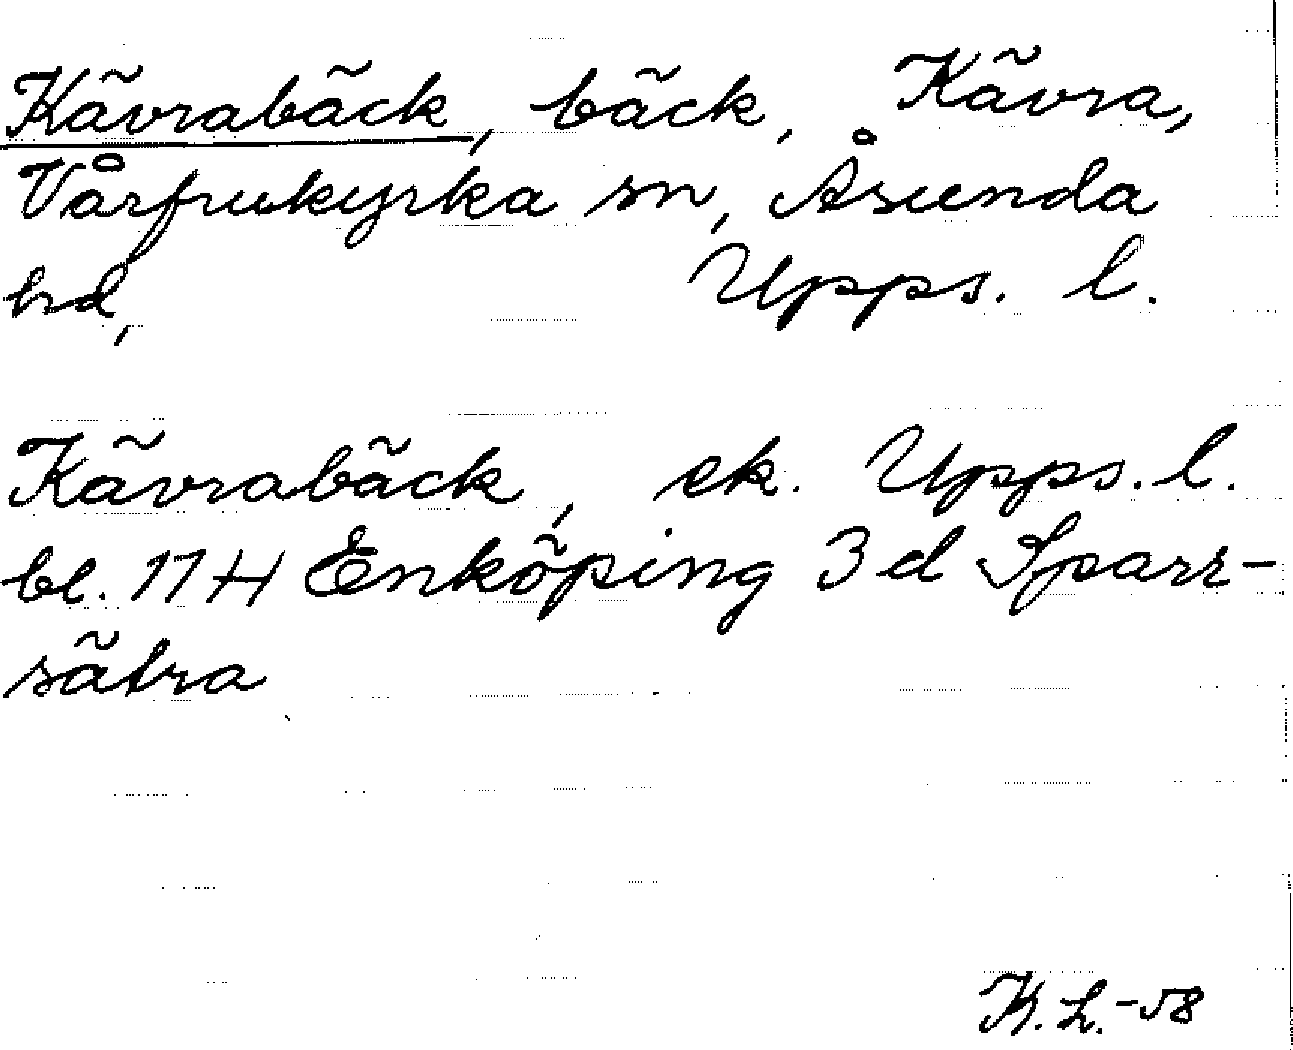 Kävrabäck, bäck, Kävra,
Vårfrukyrka sn, Åsunda
hd, Upps. l.
Kävrabäck, ek. Upps. l.
bl. 11 H Enköping 3 d Sparr-
sätra
K. L. -58